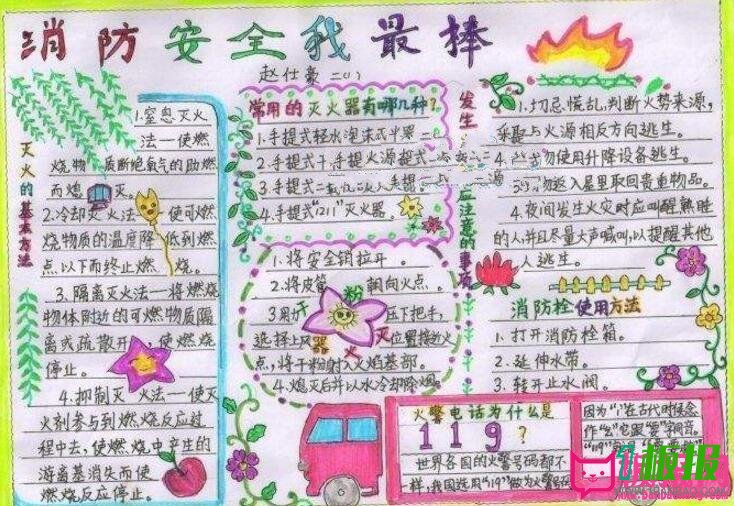 消防安全我最棒
赵仕豪 二(1)
灭火的基本方法
1.窒息灭火
法——使燃
烧物质断绝氧气的助燃
而熄灭。
2.冷却灭火法——使可燃
烧物质的温度降低到燃
点以下而终止燃烧。
3.隔离灭火法——将燃烧
物体附近的可燃物质隔
离或疏散开,使燃烧
停止。
4.抑制灭火法——使灭
火剂参与到燃烧反应过
程中去,使燃烧中产生的
游离基消失而使
燃烧反应停止。
常用的灭火器有哪几种?
1.手提式轻水泡沫灭火器
2.手提式干
3.手提式二
4.手提式"1211"灭火器。
干粉灭火器
1.将安全销拉开。
2.将皮管朝向火点。
3.用力压下把手,
选择上风位置接近火
点,将干粉射入火焰基部。
4.熄灭后并以水冷却除烟。
发生
应注意的事项
1.切忌慌乱,判断火势来源,
采取与火源相反方向逃生。
切勿使用升降设备逃生。
切勿返入屋里取回贵重物品。
4.夜间发生火灾时应叫醒熟睡
的人并且尽量大声喊叫,以提醒其他
人逃生。
消防栓使用方法
1.打开消防栓箱。
2.延伸水带。
3.转开止水阀。
火警电话为什么是
119?
世界各国的火警号码都不一
样,我国选用"119"做为火警号码
因为"1"在古代时候念
作"幺"它跟"要"同音,
板报